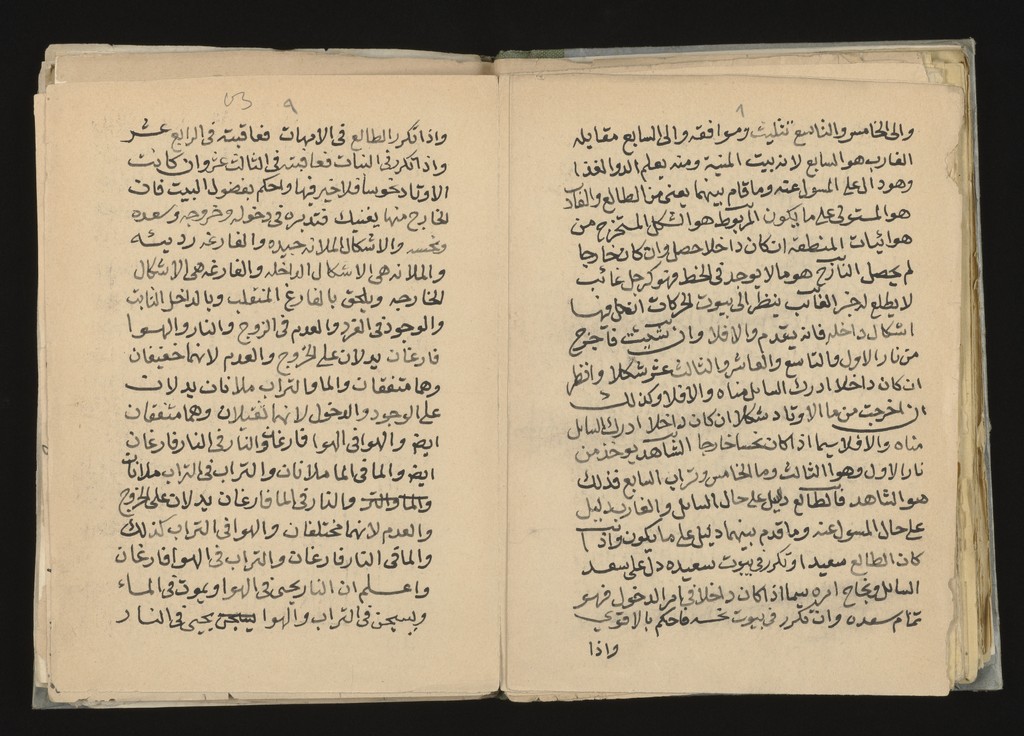 ٨
والى الخامس والتاسع تثليث وموافقه والى السابع مقابله
الغارب هو السابع لانه بيت المنية ومنه يعلم الدوا الغذا
وهو دال على المسول عنه وما قام بينهما يعنى من الطالع والغارب
هو المستولى على ما يكون المربوط هو الشكل المستخرج من
هوائيات المنطقه ان كان داخلا حصل وان كان خارجا
لم يحصل النازح هو ما لا يوجد فى الخط وهو كرجل غائب
لا يطلع له خبر الغائب ينظر الى بيوت الحركات فان فيها
اشكال داخله فانه يقدم والا فلا وان شئت فاخرج
من نار الاول والتاسع والعاشر والثالث عشر شكلا وانظر
ان كان داخلا ادرك السايل مناه والا فلا وكذلك
ان اخرجت من ما الاوتاد شكلا ان كان داخلا ادرك السايل
مناه والا فلا سيما اذا كان نحسا خارجا الشاهد يوخذ من
نار الاول وهوا الثالث وما الخامس وتراب السابع فذلك
هو الشاهد فالطالع دليل على حال السايل والغارب دليل
على حال المسول عنه وما قدم بينهما دليل على ما يكون واذا
كان الطالع سعيدا وتكرر فى بيوت سعيده دل على سعد
السايل ونجاح امره سيما اذا كان داخلا فى امر الدخول فهو
تمام سعده وان تكرر فى بيوت نحسه فاحكم بالاقوي
واذا
٩
واذا تكرر الطالع فى الامهات فعاقبته فى الرابع عشر
واذا تكرر فى البنات فعاقبته فى الثالث عشر وان كانت
الاوتاد نحوسا فلا خير فيها واحكم بفضول البيت فان
الخارج منها يغنيك فتدبره فى دخوله وخروجه وسعده
ونحسه والاشكال الملانه جيده والفارغه رديئه
والملانه هى الاشكال الداخله والفارغه هى الاشكال
الخارجه ويلحق بالفارغ المنقلب وبالداخل الثابت
والوجود فى الفرد والعدم فى الزوج والنار والهوا
فارغان يدلان على الخروج والعدم لانهما خفيفان
وهما متفقان والما والتراب ملانان يدلان
على الوجود والدخول لانهما ثقيلان وهما متفقان
ايضا والهوا فى الهوا فارغان والنار فى النار فارغان
ايضا والما فى الما ملانان والتراب فى التراب ملانان
والما والتر والنار فى الما فارغان يدلان على الخروج
والعدم لانهما مختلفان والهوا فى التراب كذلك
والما فى النار فارغان والتراب فى الهوا فارغان
واعلم ان النار يحيى فى الهوا ويموت فى الماء
ويسجن فى التراب والهوا يسجن يحيى فى النار